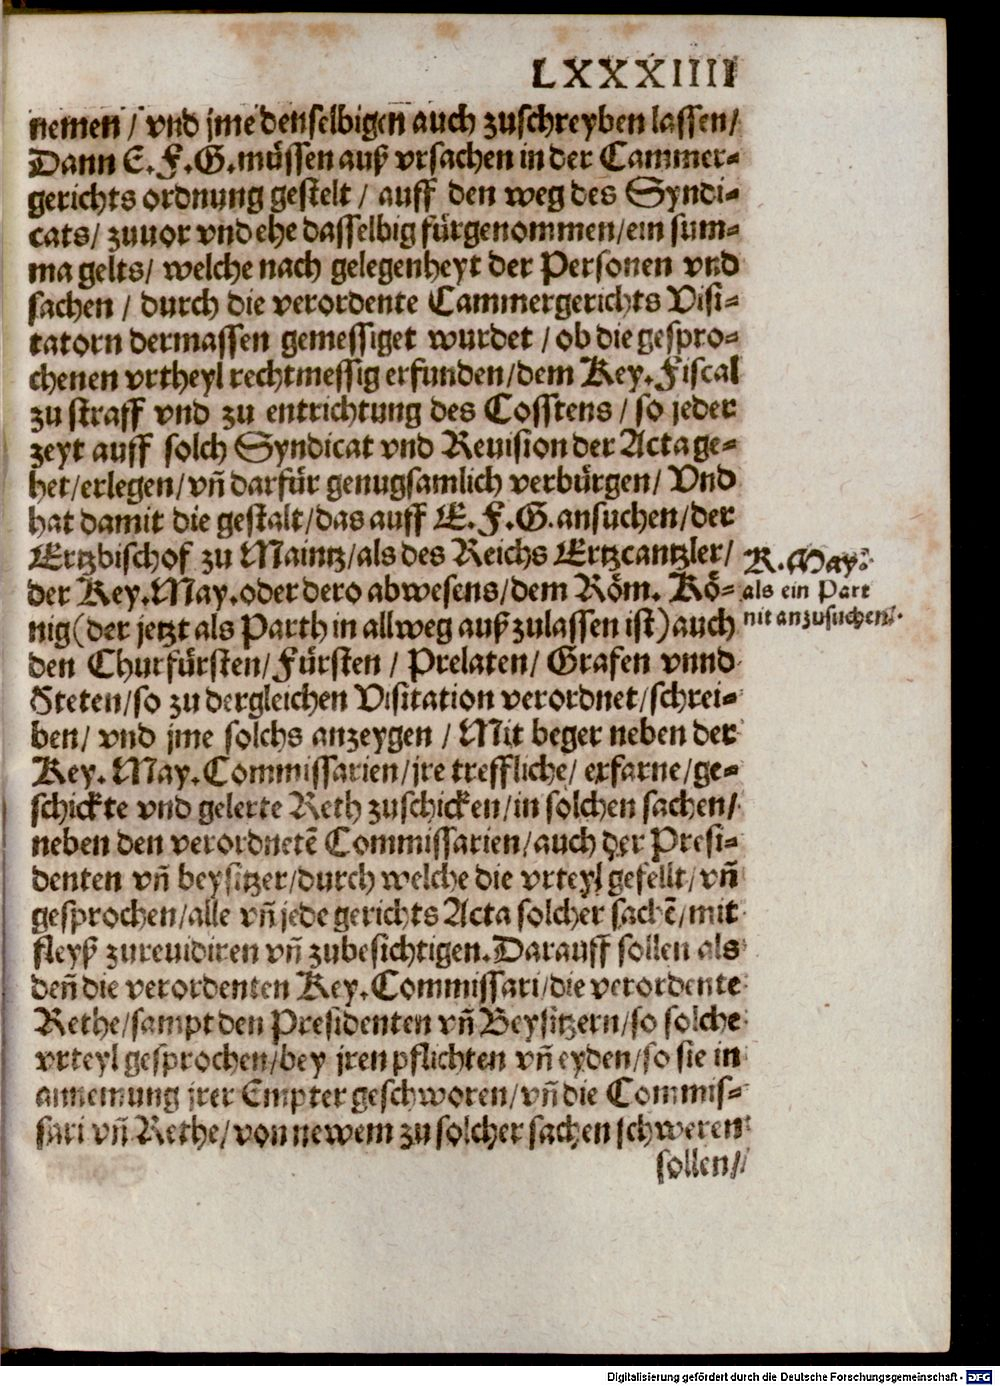 LXXXIIII
nemen / vnd jme denselbigen auch zuschreyben lassen/
Dann E. F. G. müssen auß vrsachen in der Cammer-
gerichts ordnung gestelt / auff den weg des Syndi-
cats/ zuuor vnd ehe dasselbig fürgenommen/ein sum-
ma gelts/ welche nach gelegenheyt der Personen vnd
sachen / durch die verordente Cammergerichts Visi-
tatorn dermassen gemessiget wurdet / ob die gespro-
chenen vrtheyl rechtmessig erfunden/dem Key. Fiscal
zu straff vnd zu entrichtung des Cosstens / so jeder
zeyt auff solch Syndicat vnd Reuision der Acta ge-
het/erlegen/vñ darfür genugsamlich verbürgen/ Vnd
hat damit die gestalt/das auff E. F. G. ansuchen/der
Ertzbischof zu Maintz/als des Reichs Ertzcantzler/
der Key. May. oder dero abwesens/dem Röm. Kö-
nig(der jetzt als Parth in allweg auß zulassen ist)auch
den Churfürsten/Fürsten / Prelaten/ Grafen vnnd
Steten/so zu dergleichen Visitation verordnet/schrei-
ben/ vnd jme solchs anzeygen / Mit beger neben der
Key. May. Commissarien/jre treffliche/ erfarne/ge-
schickte vnd gelerte Reth zuschicken/in solchen sachen/
neben den verordnetẽ Commissarien/auch der Presi-
denten vñ beysitzer/durch welche die vrteyl gefellt/vñ
gesprochen/alle vñ jede gerichts Acta solcher sachẽ/mit
fleyß zureuidiren vñ zubesichtigen. Darauff sollen als
deñ die verordenten Key. Commissari/die verordente
Rethe/sampt den Presidenten vñ Beysitzern/so solche
vrteyl gesprochen/bey jren pflichten vñ eyden/so sie in
annemung jrer Empter geschworen/vñ die Commis-
sari vñ Rethe/von newem zu solcher sachen schweren
sollen/
R. May.
als ein Part
nit anzusuchen.
Digitalisierung gefördert durch die Deutsche Forschungsgemeinschaft - DFG